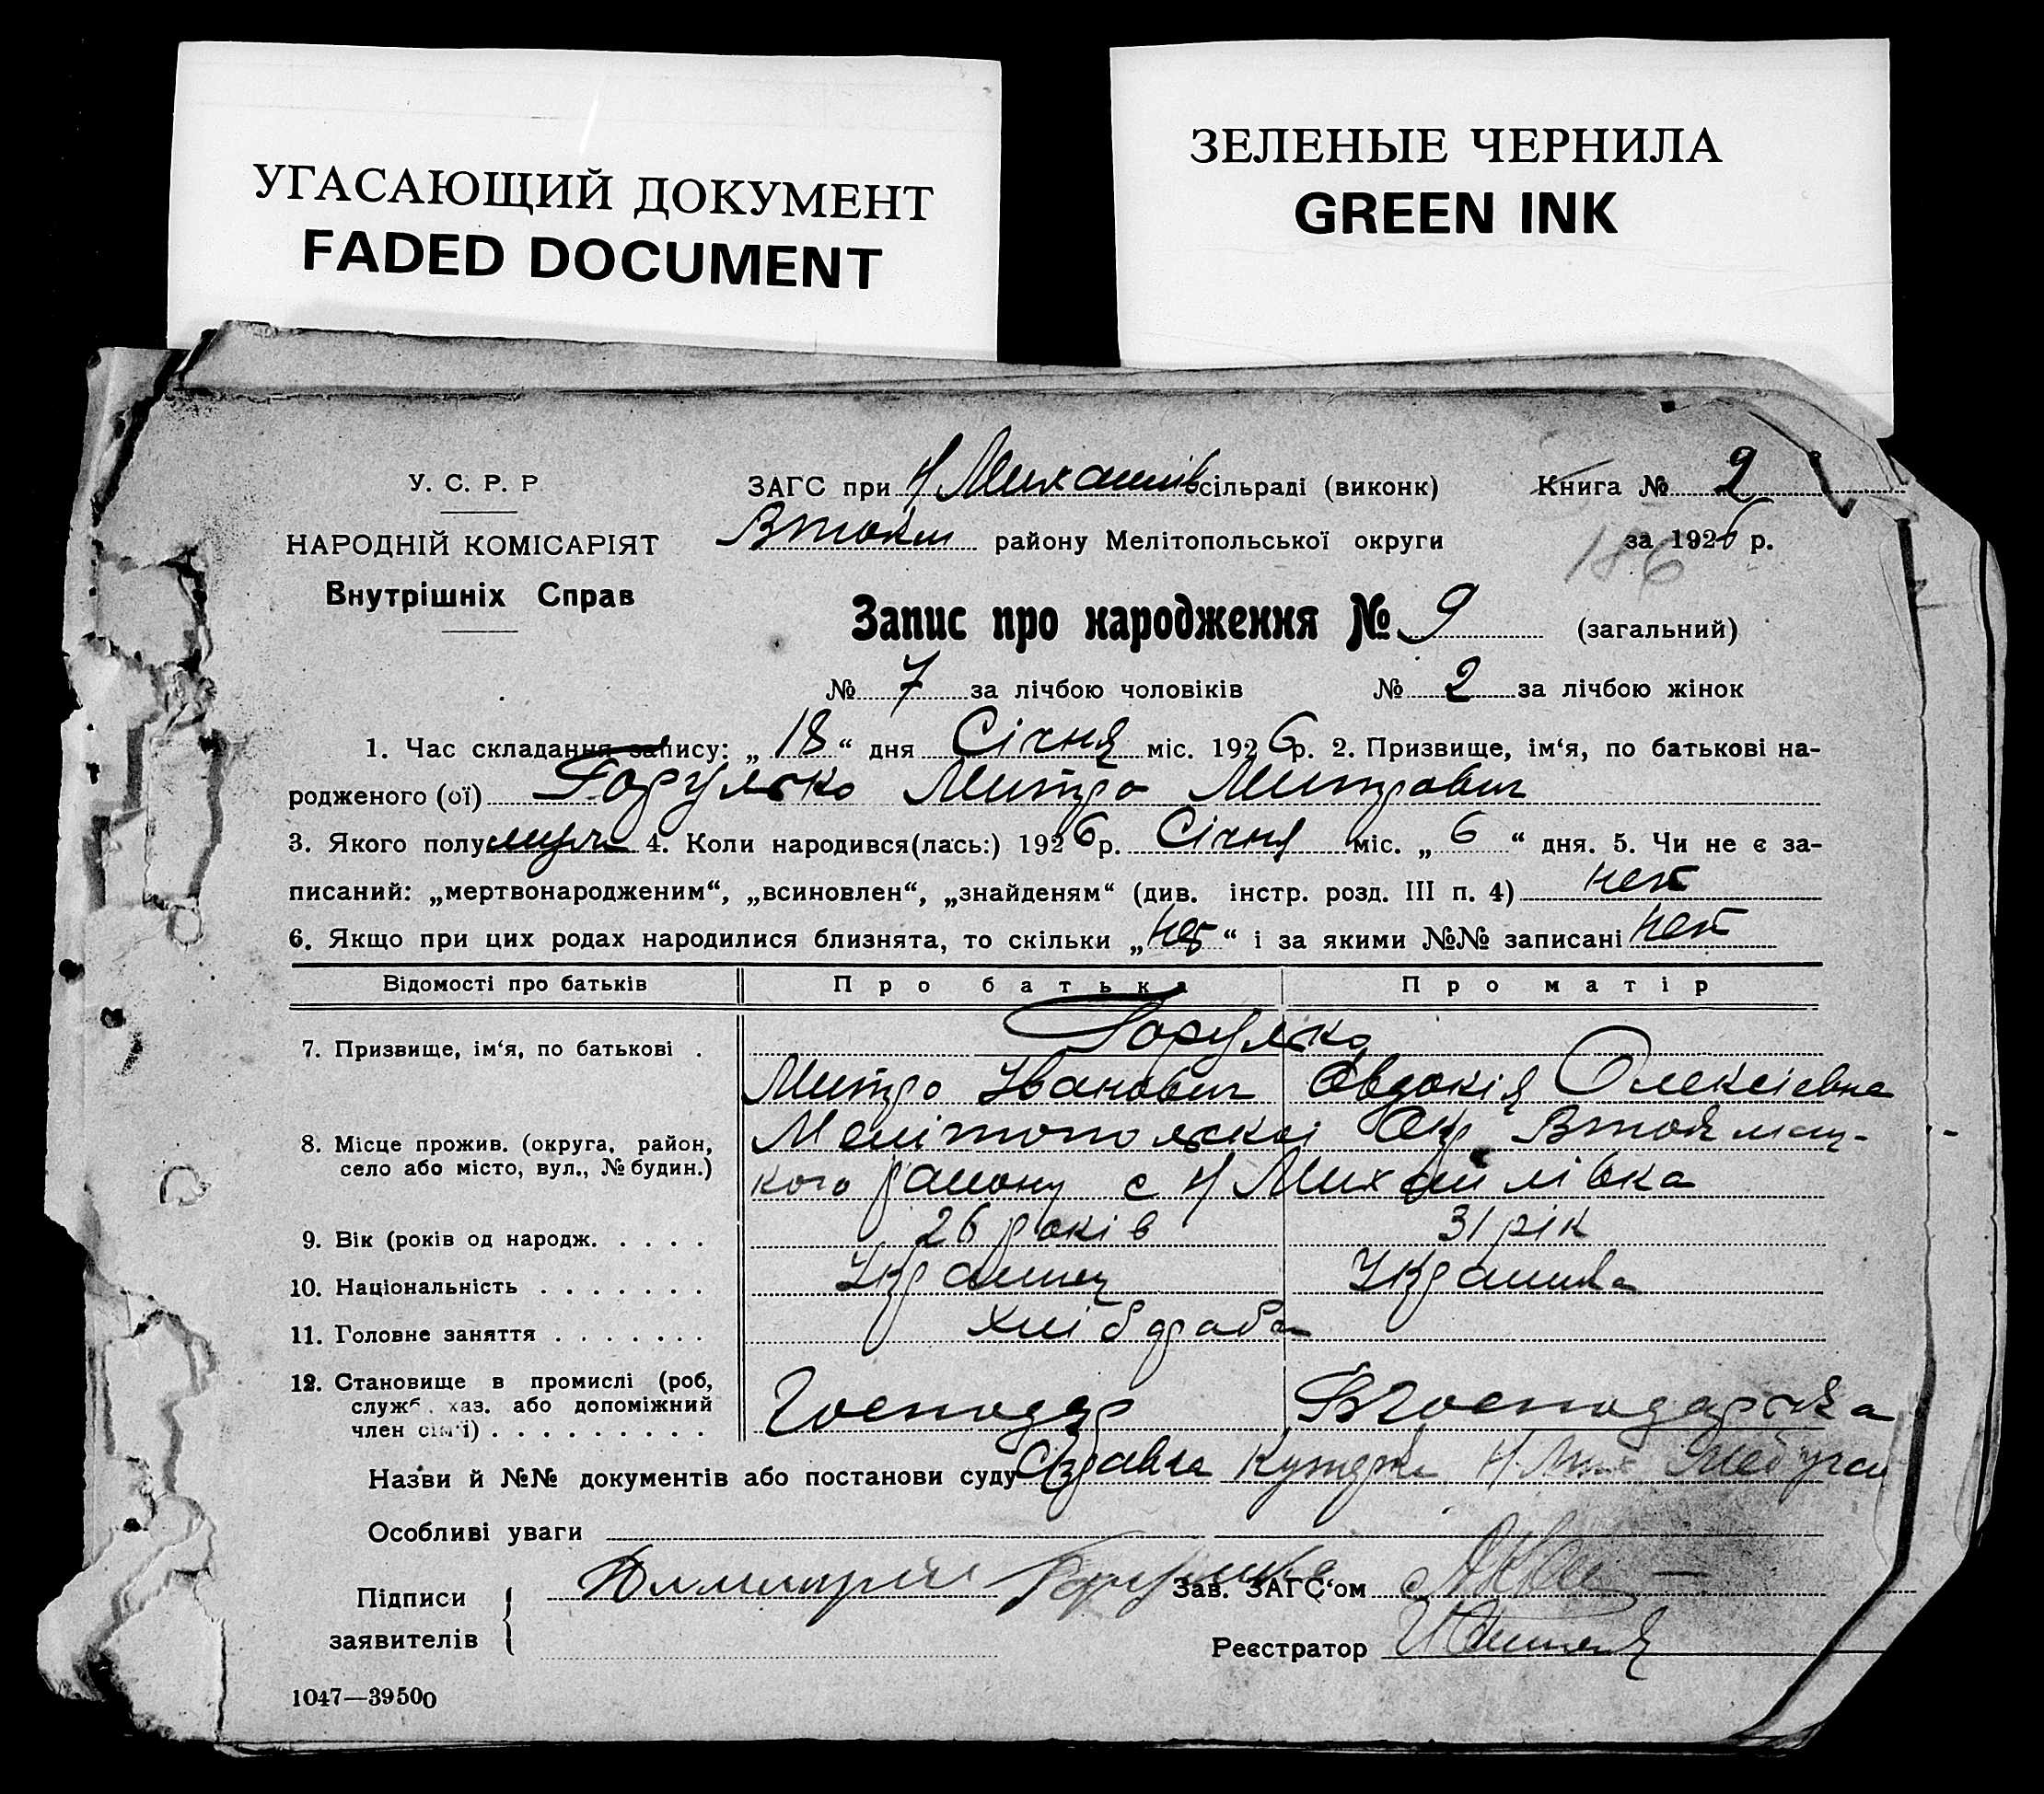 УГАСАЮЩИЙ ДОКУМЕНТ
FADED DOCUMENT
ЗЕЛЕНЫЕ ЧЕРНИЛА
GREEN INK
У. С. Р. Р.
НАРОДНІЙ КОМІСАРІЯТ
Внутрішніх Справ
ЗАГС при Н Михайлів сільраді (виконк)
Втокм району Мелітопольської округи
Книга № 2
за 1926 р.
186
Запис про народження № 9 (загальний)
№ 7 за лічбою чоловіків № 2 за лічбою жінок
1. Час складання запису: „ 18 “ дня Січня міс. 1926 р. 2. Призвище, ім‘я, по батькові на-
родженого (ої) Горулько Митро Митрович
3. Якого полу муж 4. Коли народився(лась:) 1926 р. Січня міс. „ 6 “ дня. 5. Чи не є за-
писаний: „мертвонародженим“, „всиновлен“, „знайденям“ (див. інстр. розд. III п. 4) нет
6. Якщо при цих родах народилися близнята, то скільки „ нет “ і за якими №№ записані нет
Відомості про батьків Про батька Про матір
7. Призвище, ім‘я, по батькові . Горулько
Митро Іванович Овдокія Олексіевна
8. Місце прожив. (округа, район, село або місто, вул., № будин.) Мелітопольскої Окр Втокмац-
кого району с Н Михайлівка
9. Вік (років од народж. . . . . 26 років 31 рік
10. Національність . . . . . . . Украинец Украинка
11. Головне заняття . . . . . . . Хліборобы
12. Становище в промислі (роб, служб. хаз. або допоміжний член сім‘ї) . . . . . . . . . Господар Господарка
Назви й №№ документів або постанови суду Справка Н Мих
Особливі уваги
Підписи заявителів Димитрий Горулько
Зав. ЗАГС‘ом
Реєстратор
1047—39500